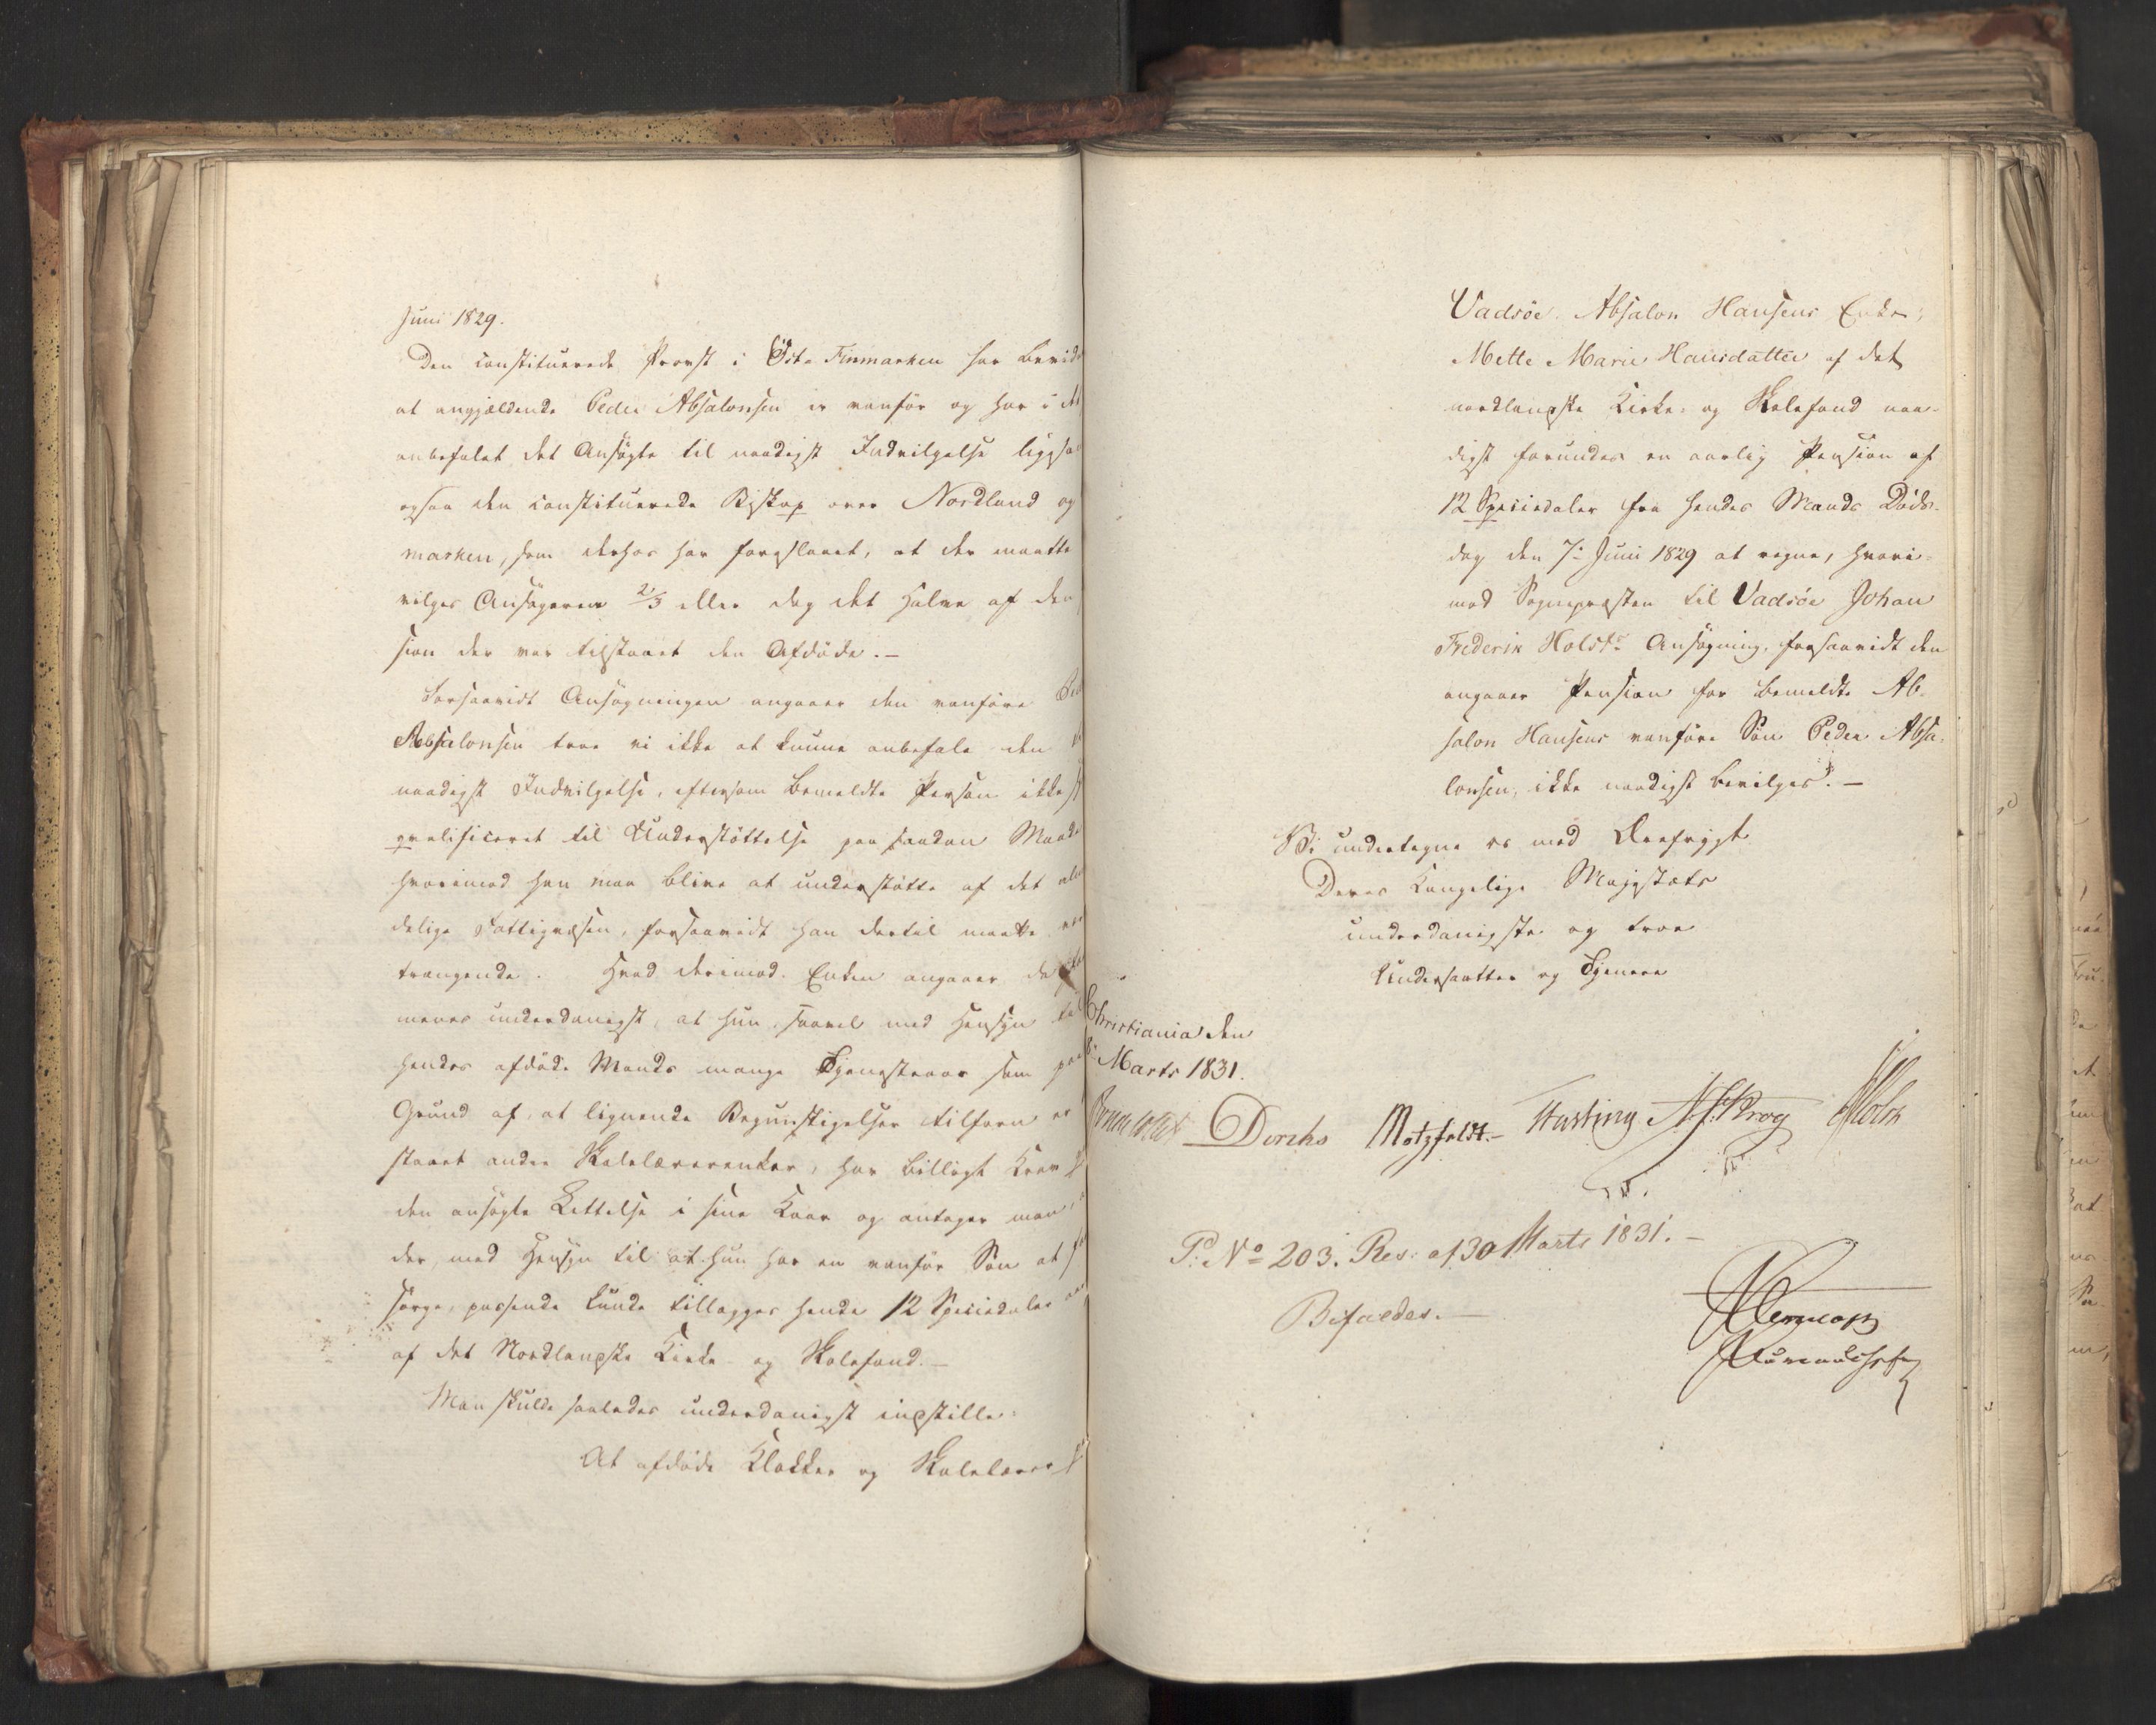 Juni 1829.
Den constituerede Provst i Öst-Finmarken har bevid
at angjældende Peder Absalonsen er vanför og har i
anbefalet det Ansögte til naadigst Indvilgelse ligesaa
ogsaa den constituerede Biskop over Nordland og
marken, som derhos har foreslaaet, at der maatte
vilges Ansögeren 2/3 eller dog det Halve af den
sion der var tilstaaet den Afdöde.-
Forsaavidt Ansögningen angaaer den vanföre Ped
Absalonsen troe vi ikke at kunne anbefale den
naadigst Indvilgelse, eftersom bemeldte Person ikke
qvalificeret til Understöttelse paa saadan Maade
hvorimod han maa blive at understötte af det
delige Fattigvæsen, forsaavidt han dertil maatte
trængende. Hvad derimod Enken angaaer da
menes underdanigst, at hun, saavel med Hensyn til
hendes afdöde Mands mange Tjenesteaar som paa
Grund af, at lignende Begunstigelser tilforn er
staaet andre Skolelærerenker, har billigt Krav
den ansögte Lettelse i sine Kaar og antager man
der, med Hensyn til at hun har en vanför Sön at
sörge, passende kunde tillægges hende 12 Speciedaler
af det Nordlandske Kirke- og Skolefond.-
Man skulde saaledes underdanigst indstille:
At afdöde Klokker og Skolelærer
Vadsöe Absalon Hansens Enke,
Mette Marie Hansdatter af det
nordlandske Kirke- og Skolefond naa-
digst forundes en aarlig Pension af
12 Speciedaler fra hendes Mands Döds-
dag den 7de Juni 1829 at regne, hvori-
mod Sognepræsten til Vadsöe Johan
Frederik Holsts Ansögning, forsaavidt den
angaaer Pension for bemeldte Ab-
salon Hansens vanföre Sön Peder Absa-
lonsen, ikke naadigst bevilges.-
Vi undertegne os med Ærefrygt
Deres Kongelige Majestæts
underdanigste og troe
Undersaatter og Tjenere
Christiania den
Marts 1831.
Diriks Motzfeldt.- Fasting Krog Holst
P. No 203. Res: af 30 Marts 1831.-
Bifaldes.-